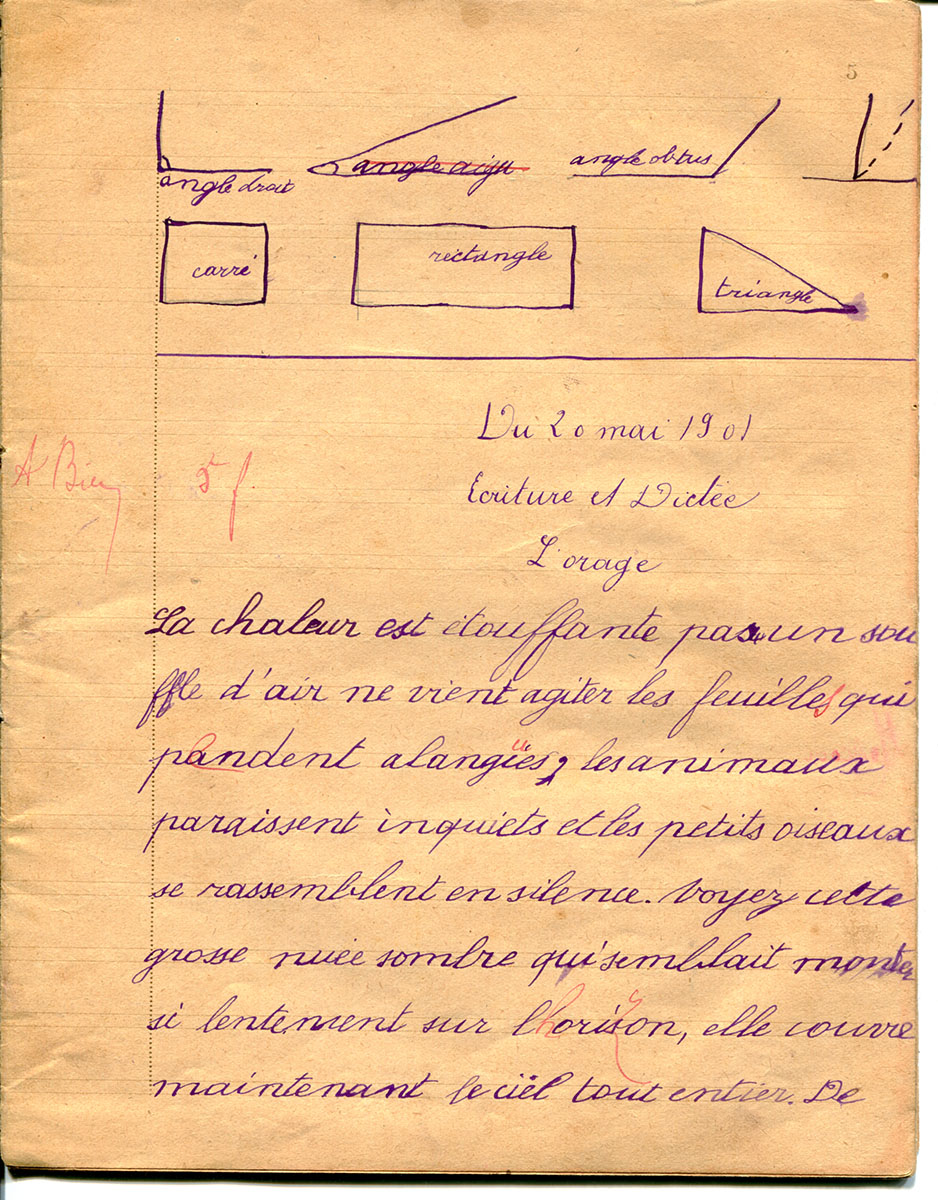 5
angle droit angle aigu angle obtus
carré rectangle triangle
Du 20 mai 1901
Ecriture et Dictée
A Bien 5 f
L'orage
La chaleur est étouffante pas un sou
ffle d'air ne vient agiter les feuilles qui
pandent alangies, les animaux
paraissent inquiets et les petits oiseaux
se rassemblent en silence. Voyez cette
grosse nuée sombre qui semblait monter
si lentement sur l'horison, elle couvre
maintenant le ciel tout entier. De